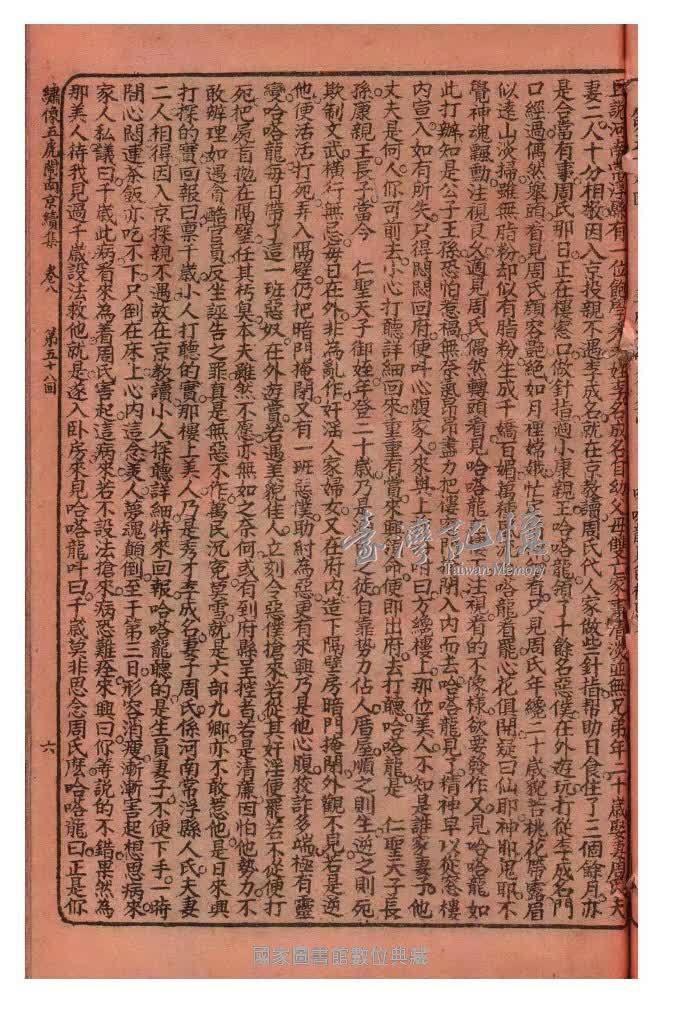 民說河南常浮縣有一位飽學秀才姓李名成名自幼父母俱亡家事清淡並無兄弟年二十歲娶妻周氏夫
妻二人十分相敬因入京投親不遇李成名就在京教讀周氏代人家做些針指帮助日食住了三個餘月亦
是合當有事周氏那日正在樓窓口做針指適小康親王哈咯龍領了十餘名惡僕在外遊玩打從李成名門
口經過偶然舉頭看見周氏顏容艷絕如月裡嫦娥忙立看只見周氏年纔二十歲貌若桃花帶露眉
似遠山淡掃雖無脂粉却似有脂粉生成千嬌百媚萬種哈咯龍看罷心花俱開疑曰仙耶神耶鬼耶不
覺神魂飄動注視良久適見周氏偶然轉頭看見哈咯龍注視看的不像樣欲要發作又見哈咯龍如
此打辦知是公子王孫恐怕惹禍無奈氣昂昂盡力把樓閉入內而去哈咯龍見了精神早以從窓樓
內宣入如有所失只得悶悶回府便呌心腹家人來興上曰方纔樓上那位美人不知是誰家妻子他
丈夫是何人你可前去小心打聽詳細回來重重有賞來興命便即出府去打聽哈咯龍是 仁聖天子長
孫康親王長子當今 仁聖天子御姪年登二十歲乃是徒自靠勢力佔人厝屋順之則生逆之則死
欺制文武橫行無忌每日在外非為亂作奸淫人家婦女又在府內造下隔壁房暗門掩閉外觀不見若是逆
他便活活打死弄入隔壁仍把暗門掩閉又有一班惡僕助紂為惡更有來興乃是他心腹狡詐多端極有靈
變哈咯龍每日帶了這一班惡奴在外遊賞若遇美貌佳人立刻令惡僕搶來若從其奸淫便罷若不從便打
死把屍首拋在隔壁任其朽臭本夫雖然不愿亦無如之奈何或有到府縣呈控者若是清廉因怕他勢力不
敢辦理如遇貪酷官員反坐誣告之罪真是無惡不作萬民沉寃莫雪就是六部九卿亦不敢惹他是日來興
打探的實回報曰禀千歲小人打聽的實那樓上美人乃是秀才李成名妻子周氏係河南常浮縣人氏夫妻
二人相得因入京探親不遇故在京教讀小人探聽詳細特來回報哈咯龍聽的是生員妻子不便下手一時
間心悶連茶飯亦吃不下只倒在床上心內這念美人夢魂顛倒至于第三日形容消瘦漸漸害起想思病來
家人私議曰千歲此病看來為着周氏害起這病來若不設法搶來病恐難痊來興曰你等說的不錯果然為
那美人待我見過千歲設法救他就是遂入卧房來見哈咯龍呌曰千歲莫非思念周氏麽哈咯龍曰正是你
繡像五虎鬧南京續集 卷八 第五十八回 六
臺灣記憶
Taiwan Memory
國家圖書館數位典藏